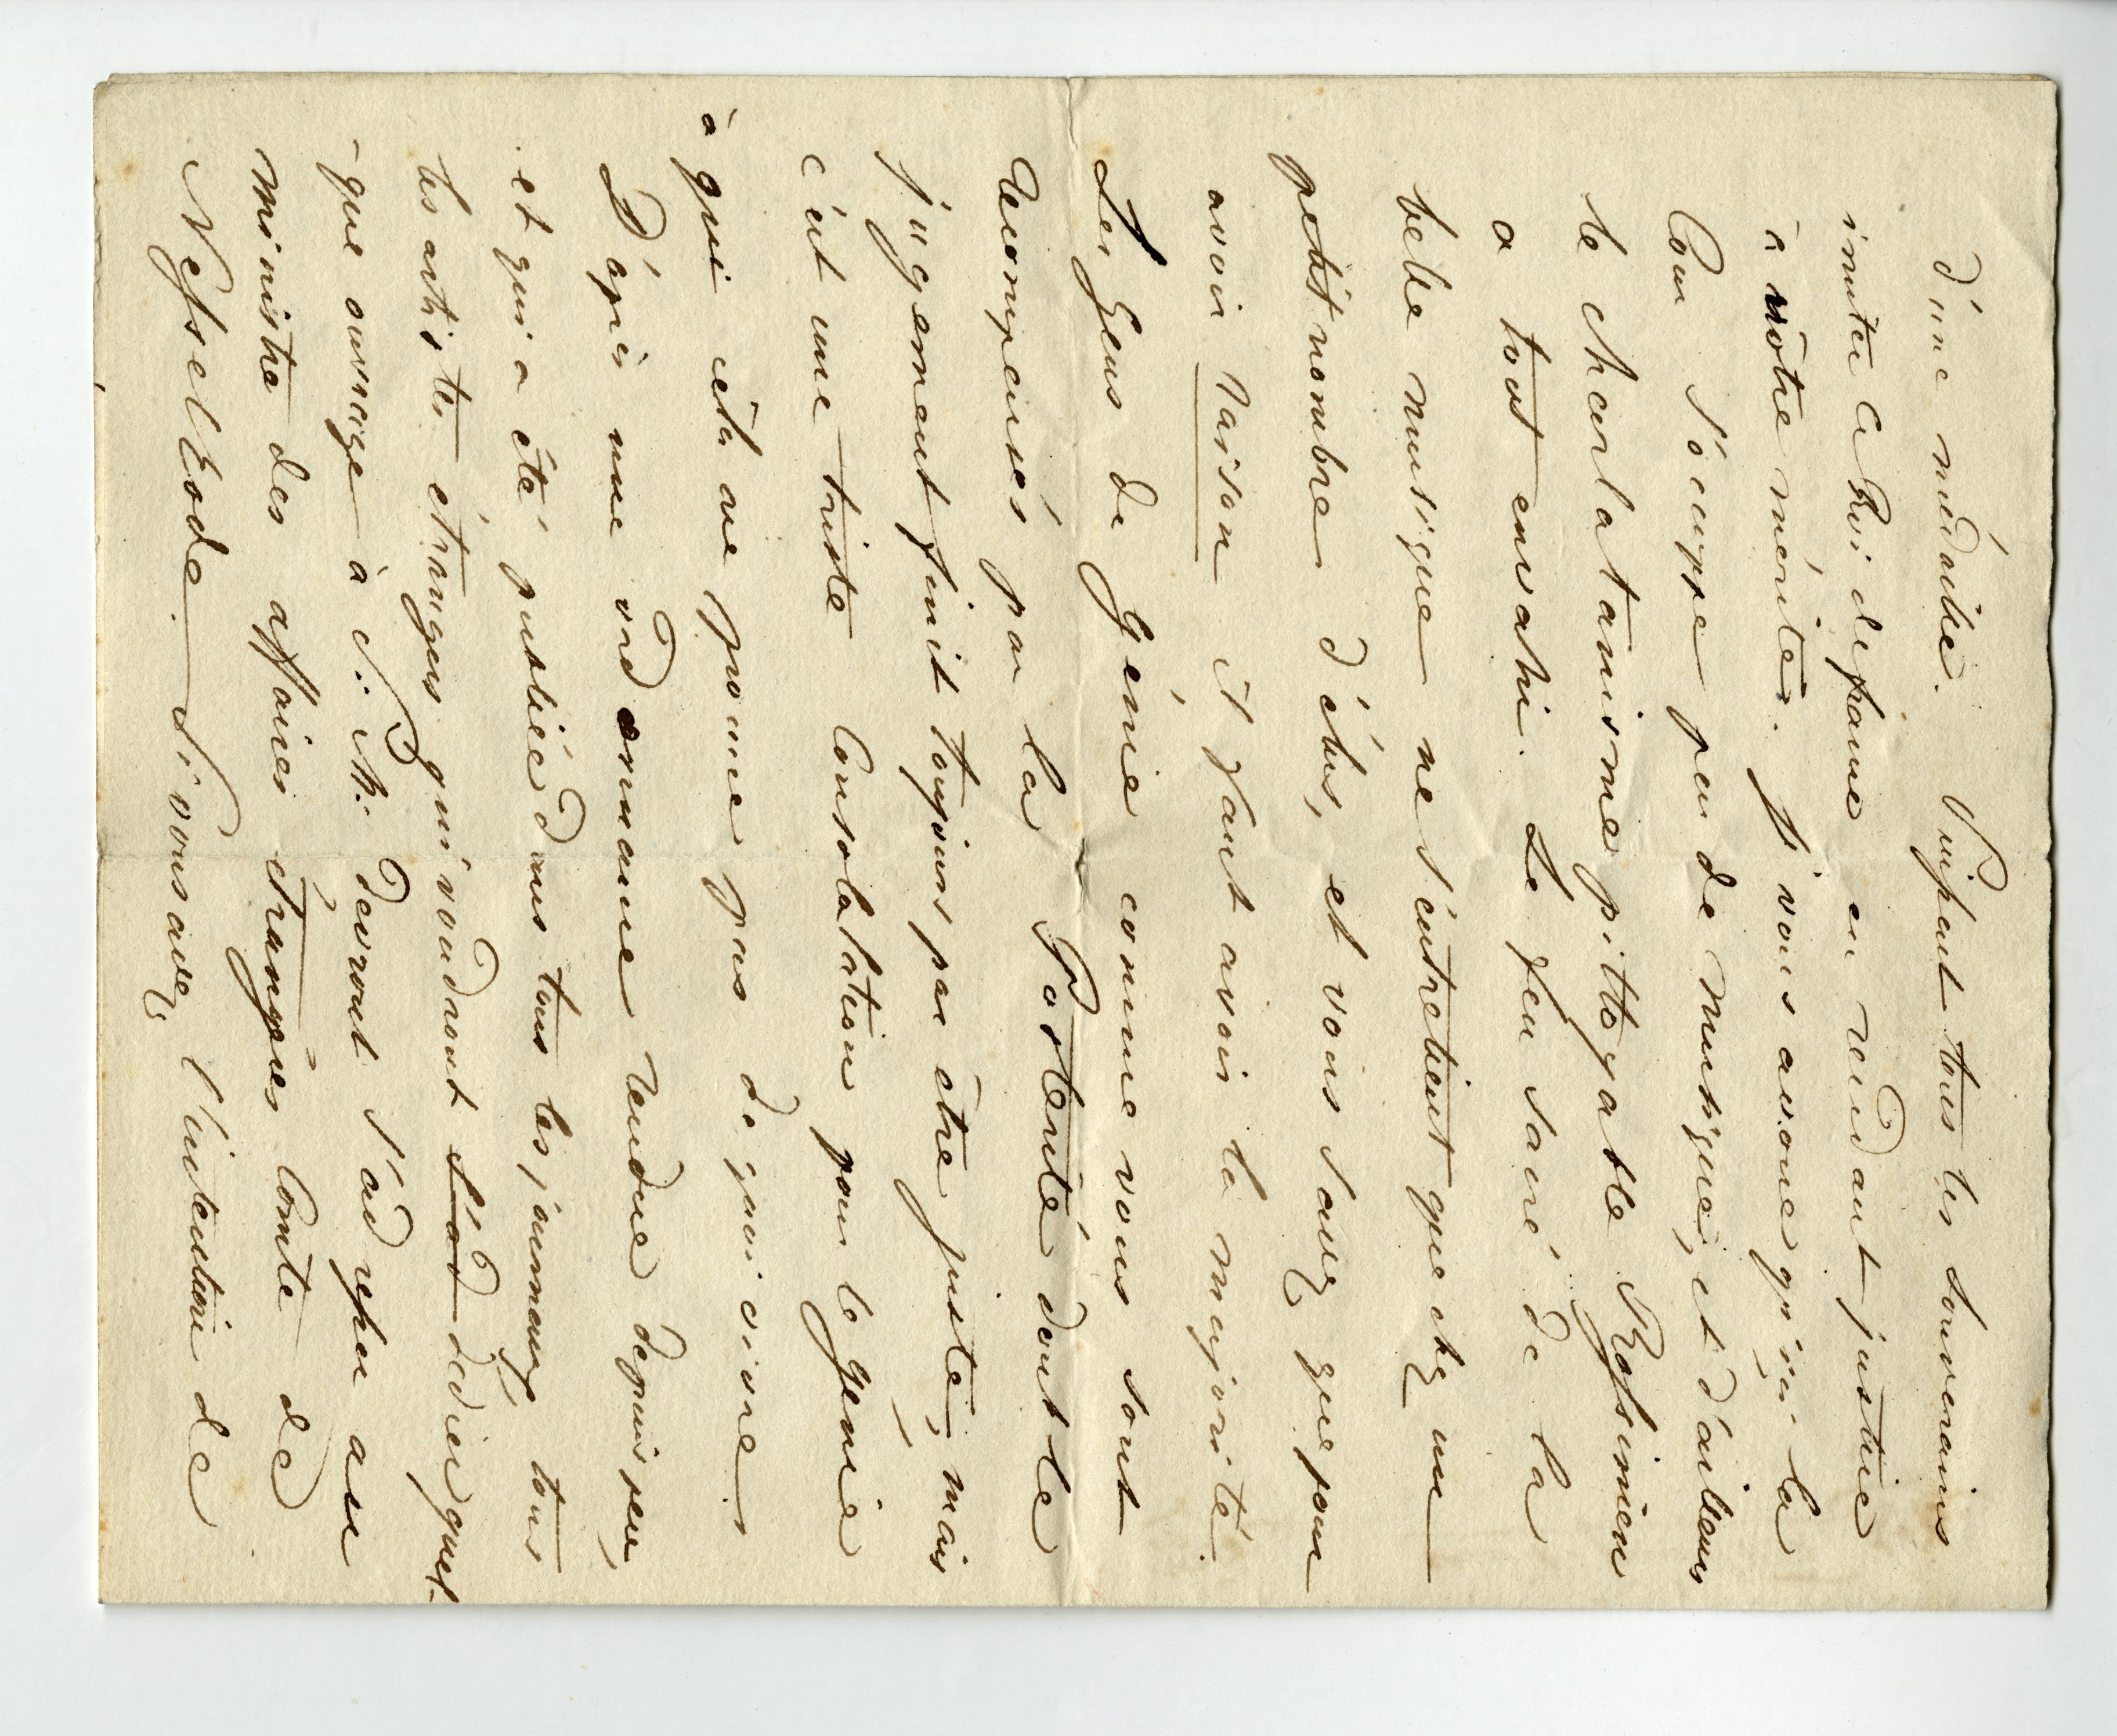 d'une médaille. Puissent tous les souverains
imiter ce Roi de france en rendant justice
à vôtre mérite. Je vous avoue qu'ici la
Cour s'ocuppe peu de musique, et d'ailleurs
le charlatanisme pittoyable Rossinien
a tout envahi. Le feu sacré de la
belle musique ne s'entretient que chez un
petit nombre d'élus, et vous savez que pour
avoir raison il faut avoir la majorité.
Les Gens de Génie comme vous sont
recompensés par la Posterité dont le
jugement finit toujours par être juste, mais
c'est une triste Consolation pour le genie
à qui cela ne donne pas de quoi vivre.
D'après une ordonnance rendue depuis peu,
et qui a été publiée dans tous les journaux, tous
les artistes étrangers qui voudront s'ad dedier quel-
-que ouvrage à S: M: devront s'adresser au
ministre des affaires étrangères Comte de
Nesselrode. Si vous avez l'intention de